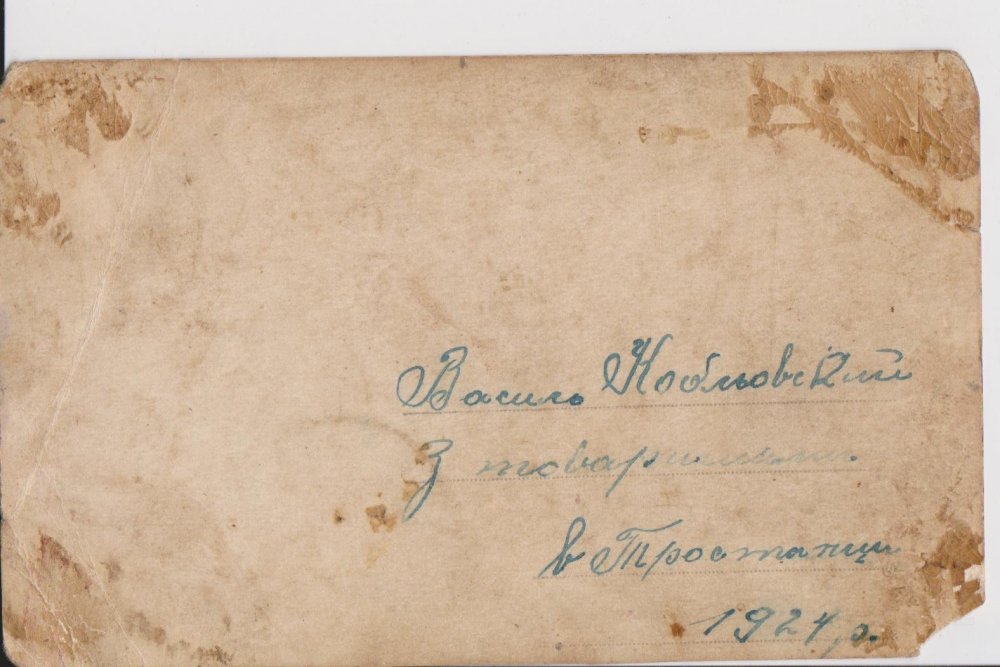 Василь Кобльовский
З товаришами
в Тростянци
1924 р.